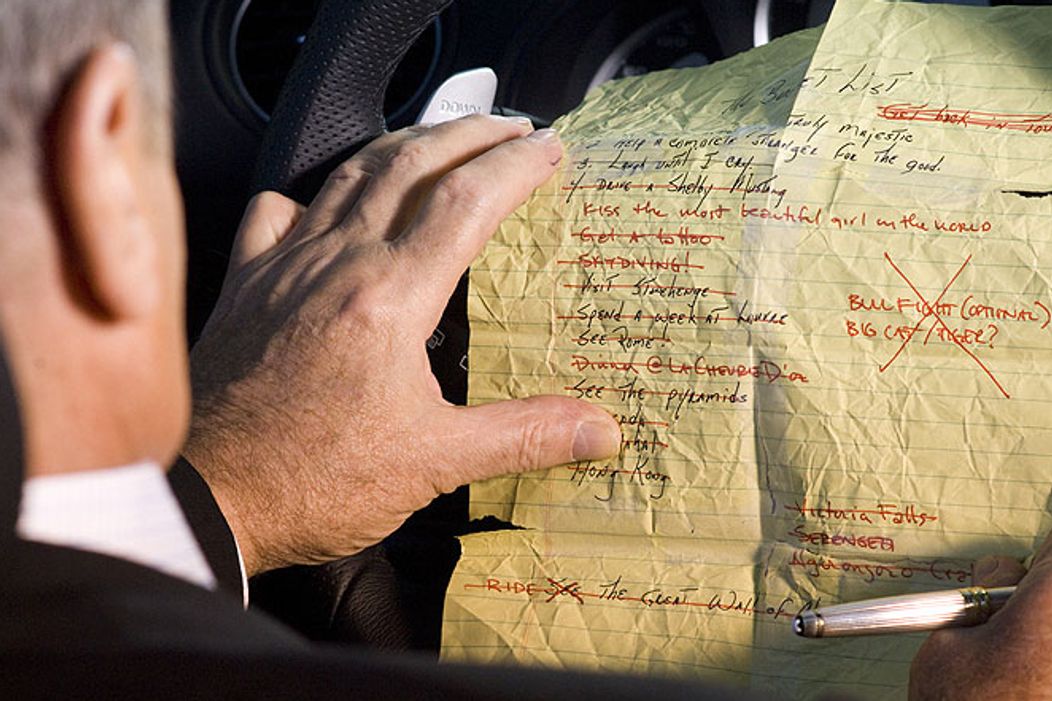 DOWN
The Bucket List
Get back in tou
truly majestic
2. Help a complete stranger for the good.
3. Laugh until I cry
4. Drive a Shelby Mustang
Kiss the most beautiful girl in the world
Get a tattoo
SKYDIVING!
Visit Stonehenge
Spend a week at Louvre
See Rome!
Dinner @ LA CHEVRE D'or
See The pyramids
Hong Kong
BULL FIGHT (OPTIONAL)
BIG CAT / TIGER?
Victoria Falls
SERENGETI
Ngorongoro Cra
RIDE SEE The Great Wall of